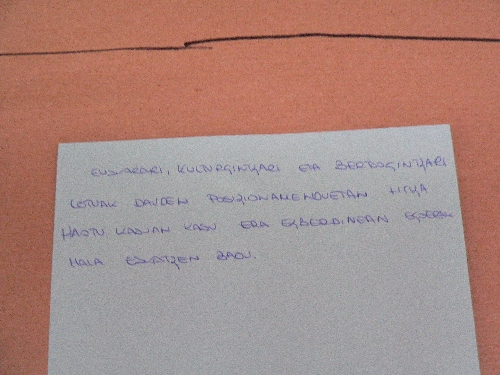 EUSKARARI, KULTURGINTZARI ETA BERTSOGINTZARI
LOTUAK DAUDEN POSIZIONAMENDUETAN HITZA
HARTU KASUAN KASU ERA EZBERDINEAN
HALA ESKATZEN BADU.